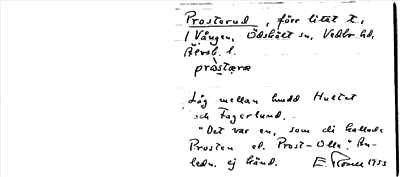 Prosterud, förr litet t.,
/ Vången, Ödskölt sn, Vedbo hd,
Älvsb. l.
pròstæræ
Låg mellan hudd Hultet
och Fagerlund.
"Det var en, som di kallade
Prosten el. Prost-Olle." An-
ledn. ej känd. E. 1933